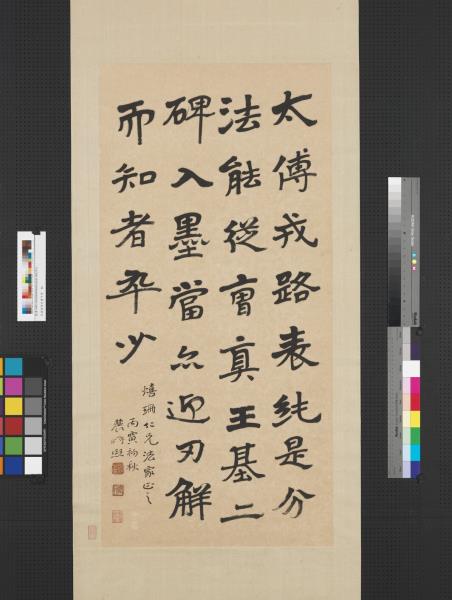 太傅戎路表純是分
法能從曹真王基二
碑入墨當亦迎刃解
而知者卒少
珊仁兄法家正之
丙寅初秋
農髯熙